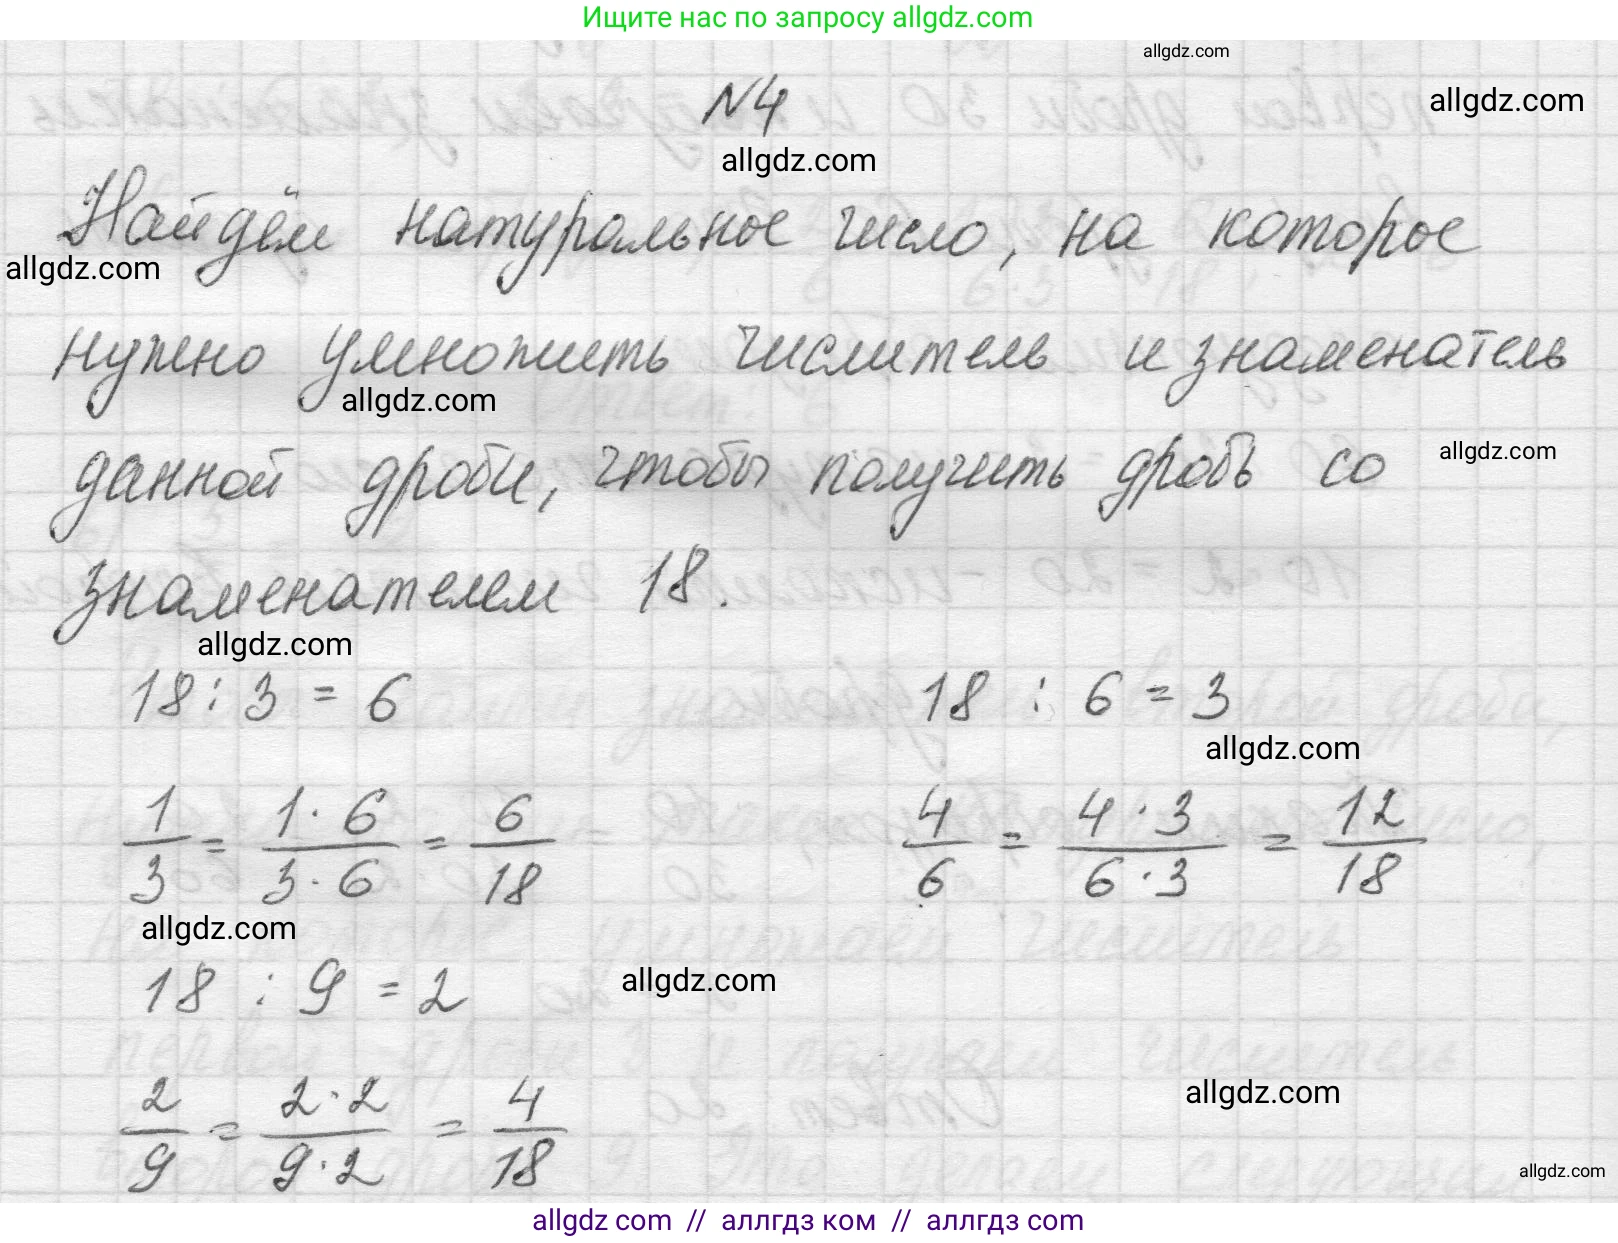 Ищите нас по запросу allgdz.com
allgdz.com
№4
allgdz.com
allgdz.com
Найдём натуральное число, на которое
allgdz.com
нужно умножить числитель и знаменатель
allgdz.com
данной дроби, чтобы получить дробь со
allgdz.com
знаменателем 18.
allgdz.com
18 : 3 = 6 18 : 6 = 3
allgdz.com
1/3 = 1·6/3·6 = 6/18 4/6 = 4·3/6·3 = 12/18
allgdz.com
18 : 9 = 2
allgdz.com
2/9 = 2·2/9·2 = 4/18
allgdz.com
allgdz.com
allgdz com // аллгдз ком // аллгдз com